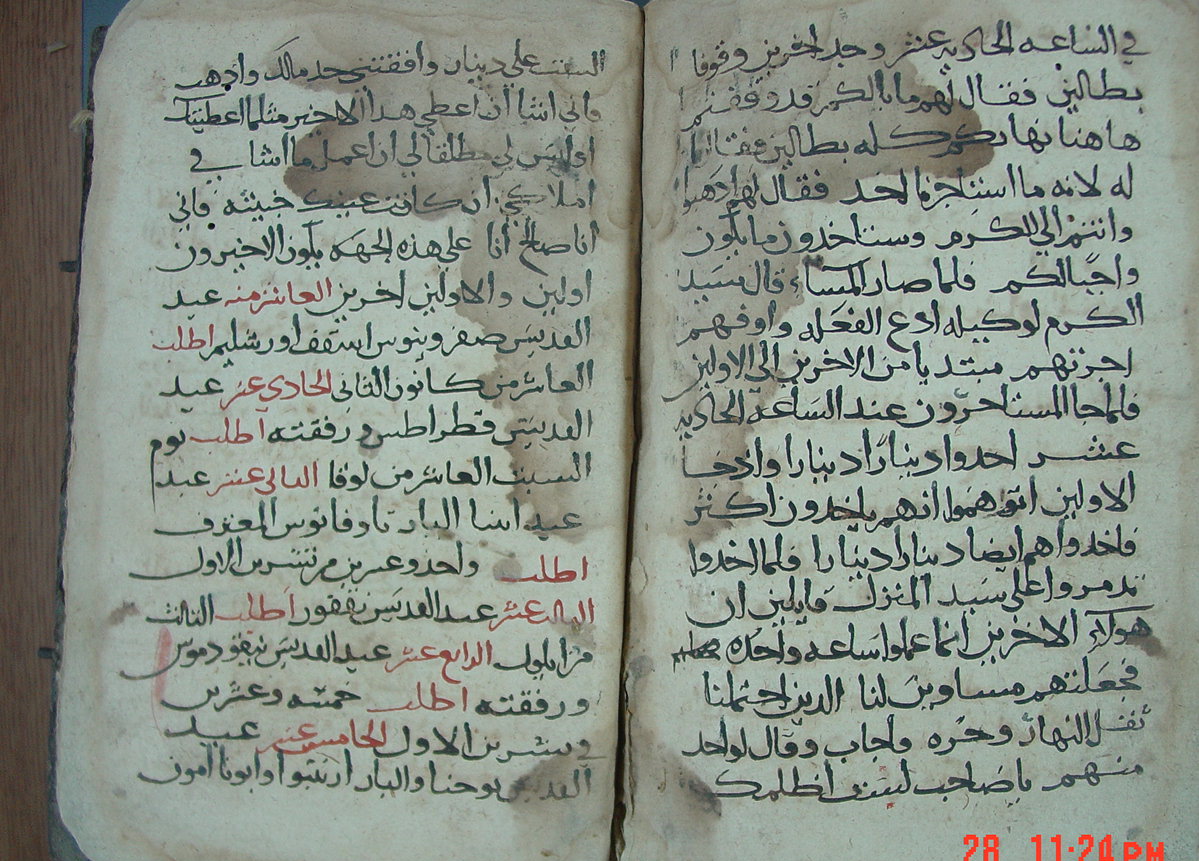 في الساعه الحاديه عشر وجد اخرين وقوفا
بطالين فقال لهم ما بالكم قد وقفتم
هاهنا نهاركم كله بطالين فقالوا
له لانه ما استاجرنا احد فقال لهم ادهبوا
وانتم الي الكرم وستاخدون ما يكون
واجبا لكم فلما صار المساء قال سيد
الكرم لوكيله ادع الفعله واوفهم
اجرتهم مبتديا من الاخرين الي الاولين
فلما جا المستاجرون عند الساعه الحاديه
عشر اخدوا دينارًا دينارا واد جا
الاولين اتوهموا انهم ياخدون اكثر
فاخدوا هم ايضا دينارا دينارا فلما اخدوا
تدمروا علي سيد المنزل قايلين ان
هولاء الاخرين انما عملوا ساعه واحده
فجعلتهم مساوين لنا الدين احتملنا
ثقل النهار وحره واجاب وقال لواحد
منهم يا صاحب لست اظلمك
الست علي دينار وافقتني خد مالك وادهب
فاني اشا ان اعطي هدا الاخير مثلما اعطيتك
اوليس لي مطلقا لي ان اعمل ما اشا في
املاكي ان كانت عينك خبيثه فاني
انا صالح انا علي هذه الجهه يكون الاخيرون
اولين والاولين اخرين العاشر منه عيد
القديس صفرونيوس اسقف اورشليم اطلب
العاشر من كانون الثاني الحادي عشر عيد
القديس قطراطس ورفقته اطلب يوم
السبت العاشر من لوقا الثاني عشر عيد
عيد ابينا البار تاوفانوس المعترف
اطلب واحد وعشرين من تشرين الاول
الثالث عشر عيد القديس نيقفور اطلب الثالث
من ايلول الرابع عشر عيد القديس نيقوديموس
ورفقته اطلب خمسه وعشرين
في تشرين الاول الخامس عشر عيد
القديس يوحنا والبار وابونا امون
28 11:24 PM